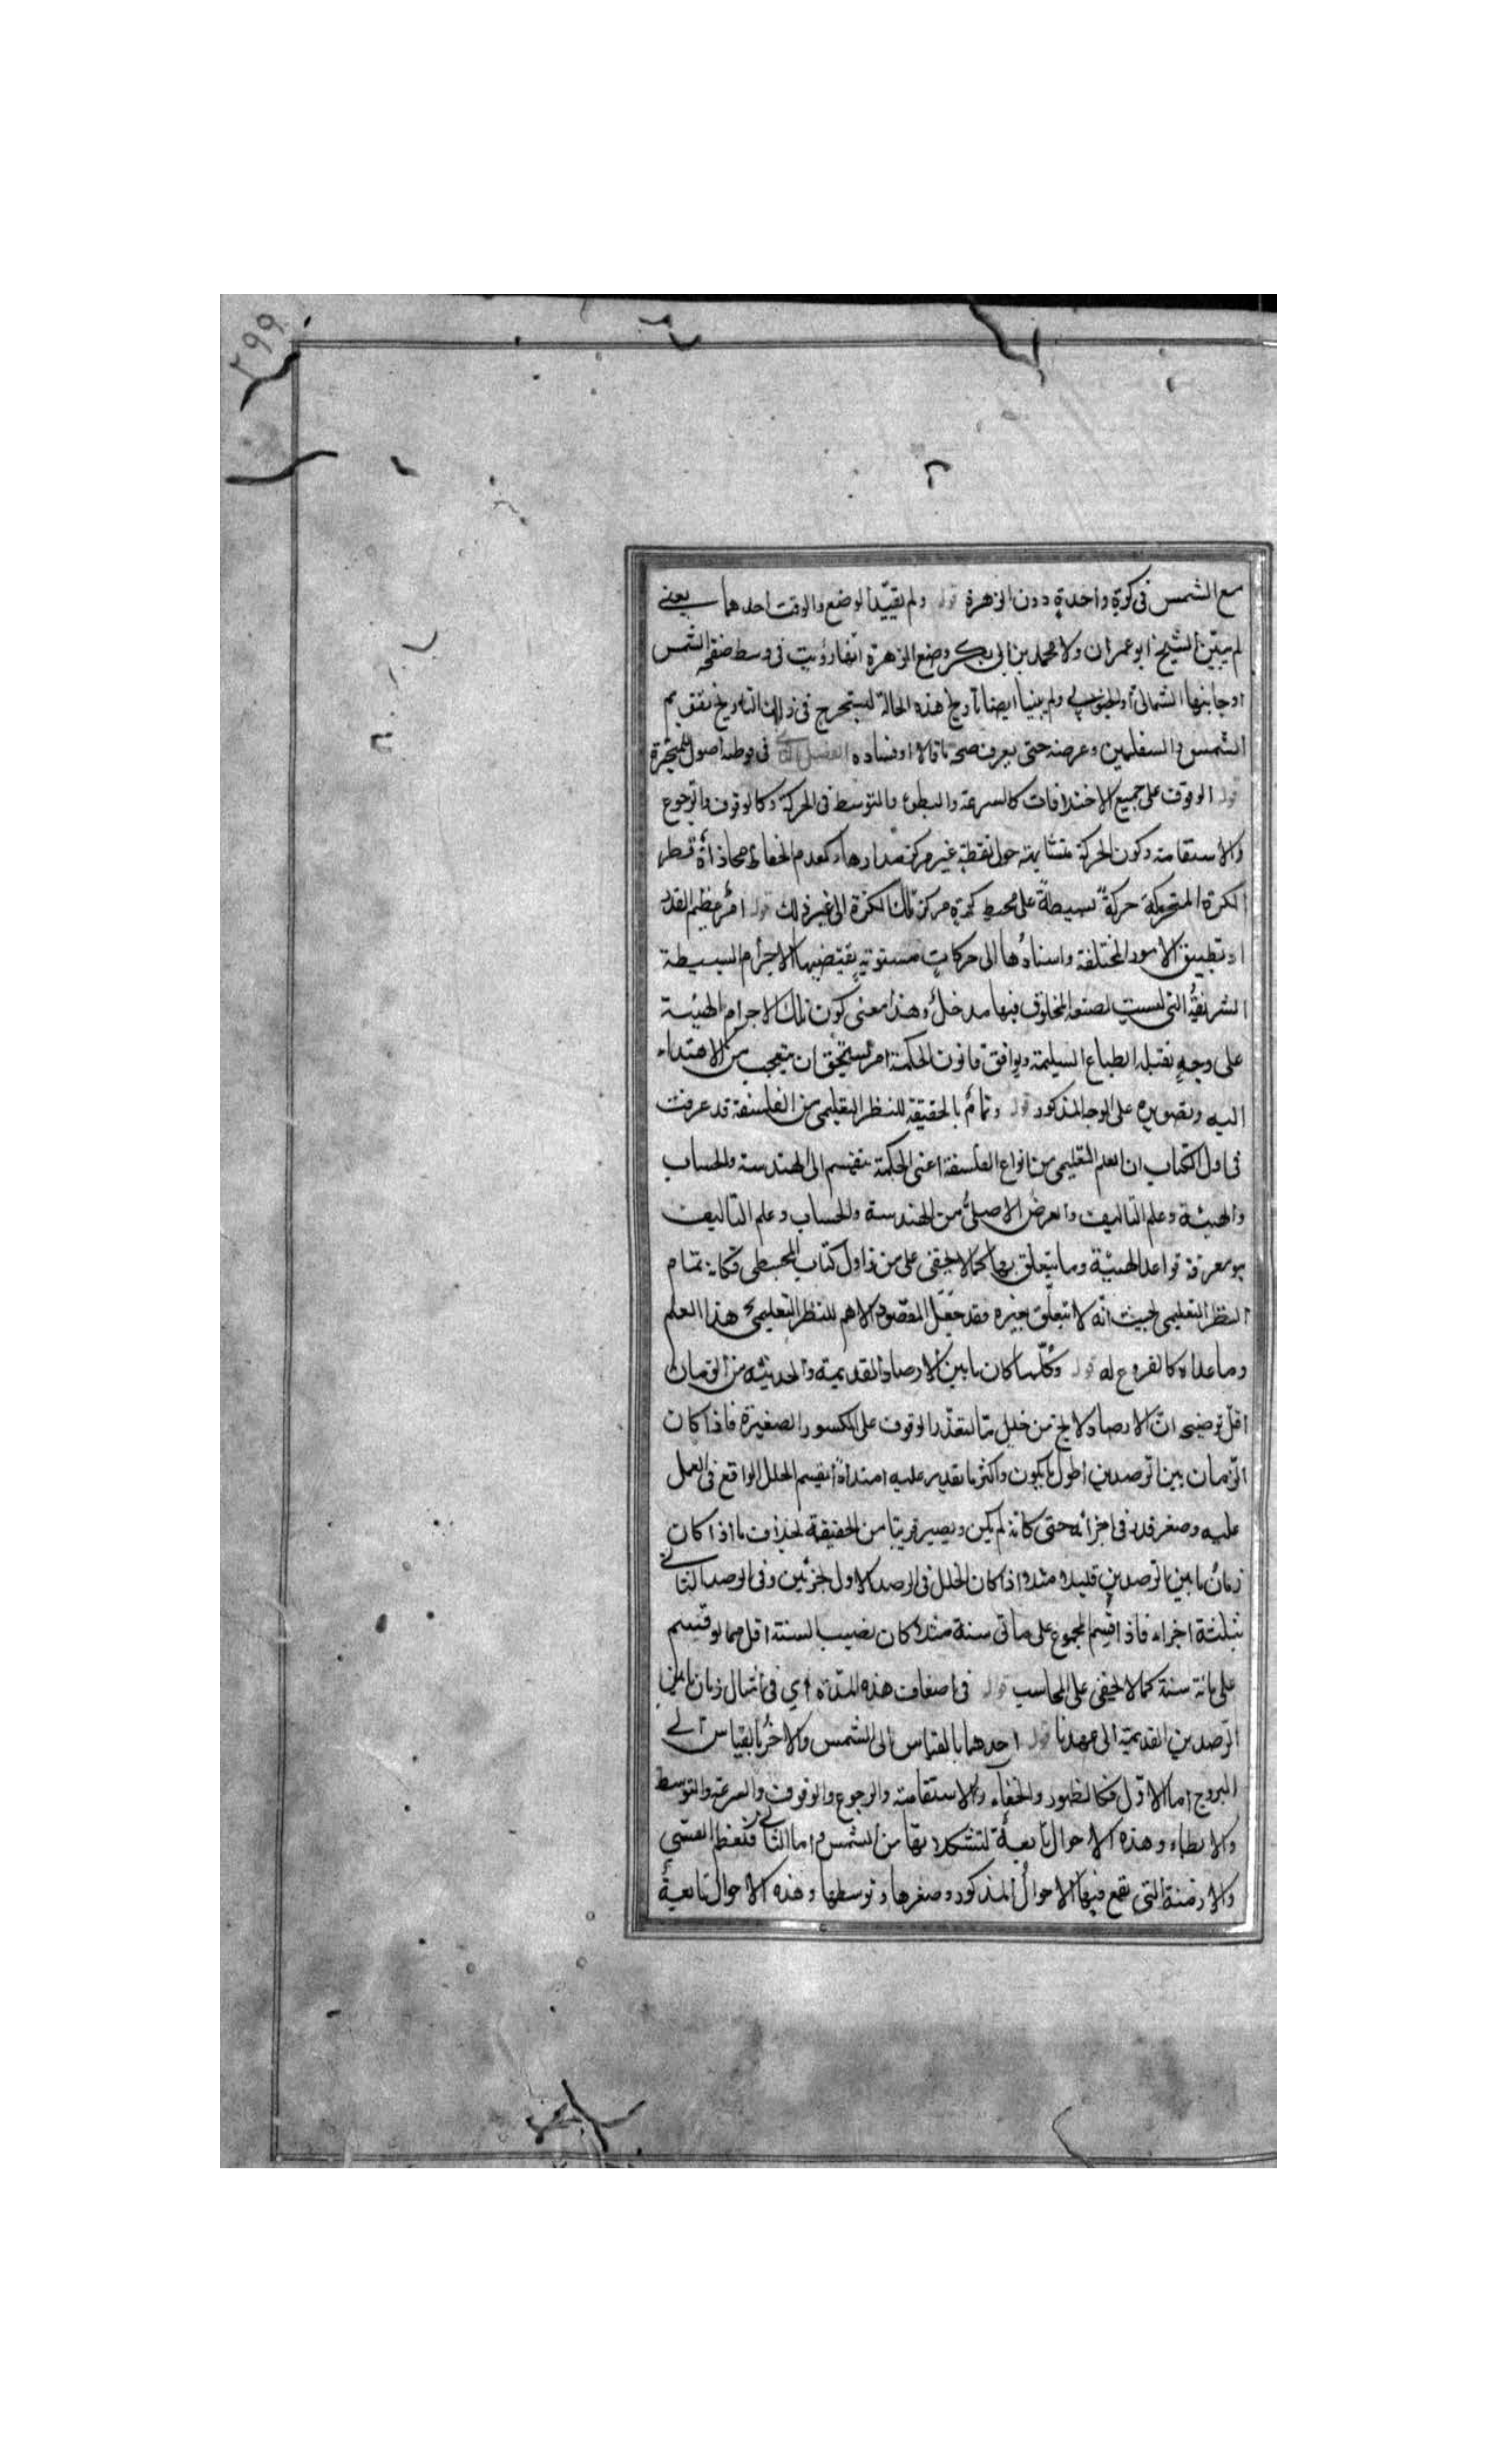 ٢٩٩
٢
مع الشمس فى كرة واحدة دون الزهرة قوله ولم يقيّد الوضع والوقت احدهما يعنى
لم يبيّن الشيخ ابو عمران ولا محمد بن ابى بكر وضع الزهرة انها رؤيت فى وسط صفحة الشمس
او جانبها الشمالى او الجنوبى ولم يبنيا ايضا تاريخ هذه الحالة ليستخرج فى ذلك التاريخ تقويم
الشمس والسفلين وعرضه حتى يعرف صحة ما قالا او فساده الفصل فى توطئه اصول للمتحيرة
قوله الوقوف على جميع الاختلافات كالسرعة والبطوء والتوسط فى الحركة وكالوقوف والرجوع
والاستقامة وكون الحركة متشابهة حول نقطة غير مركز مدارها وكعدم انحفاظ محاذاة قطر
الكرة المتحركة حركة بسيطة على محيط كرة مركز تلك الكرة الى غير ذلك قوله امر عظيم القدر
اذ تطبيق الامور المختلفة واسنادها الى حركات مستوية يقتضيها الاجرام البسيطة
الشريفة التى ليست لصنع المخلوق فيها مدخل وهذا معنى كون تلك الاجرام الهيئة
على وجه تقبله الطباع السليمة ويوافق قانون الحكمة امر يستحق ان يتعجب من الاهتداء
اليه وتصويره على الوجه المذكور قوله وتمام بالحقيقة للنظر التعليمى من الفلسفة قد عرفت
فى اول الكتاب ان العلم التعليمى من انواع الفلسفة اعنى الحكمة ينقسم الى الهندسة والحساب
والهيئة وعلم التاليف والغرض الاصلى من الهندسة والحساب وعلم التاليف
هو معرفة قواعد الهيئة وما يتعلق بها كما لا يخفى على من زاول كتاب المجسطى فكانه تمام
النظر التعليمى بحيث انه لا يتعلق بغيره فقد جعل المقصود الاهم للنظر التعليمى هذا العلم
وما عداه كالفروع له قوله وكلما كان ما بين الارصاد القديمة والحديثه من الزمان
اقل توضيحه ان الارصاد لا يخ من خلل ما لتعذر الوقوف على الكسور الصغيرة فاذا كان
الزمان بين الرصدين اطول ما يكون واكثر ما يقدر عليه امتدادا انقسم الخلل الواقع فى العمل
عليه وصغر قدره فى اجزائه حتى كانه لم يكن ويصير قريبا من الحقيقة بخلاف ما اذا كان
زمان ما بين الرصدين قليلا مثلا اذا كان الخلل فى الرصد الاول جزئين وفى الرصد الثانى
ثلثة اجزاء فاذا قسم المجموع على مائتى سنة مثلا كان نصيب السنة اقل مما لو قسم
على مائة سنة كما لا يخفى على المحاسب قوله فى اضعاف هذه المدة اى فى امثال زمان ما بين
الرصدين القديمة الى عهدنا قوله احدهما بالقياس الى الشمس والاخر بالقياس الى
البروج اما الاول فكالظهور والخفاء والاستقامة والرجوع والوقوف والسرعة والتوسط
والابطاء وهذه الاحوال تابعة لتشكلاتها من الشمس واما الثانى فكعظم القسى
والازمنة التى يقع فيها الاحوال المذكور وصغرها وتوسطها وهذه الاحوال تابعة